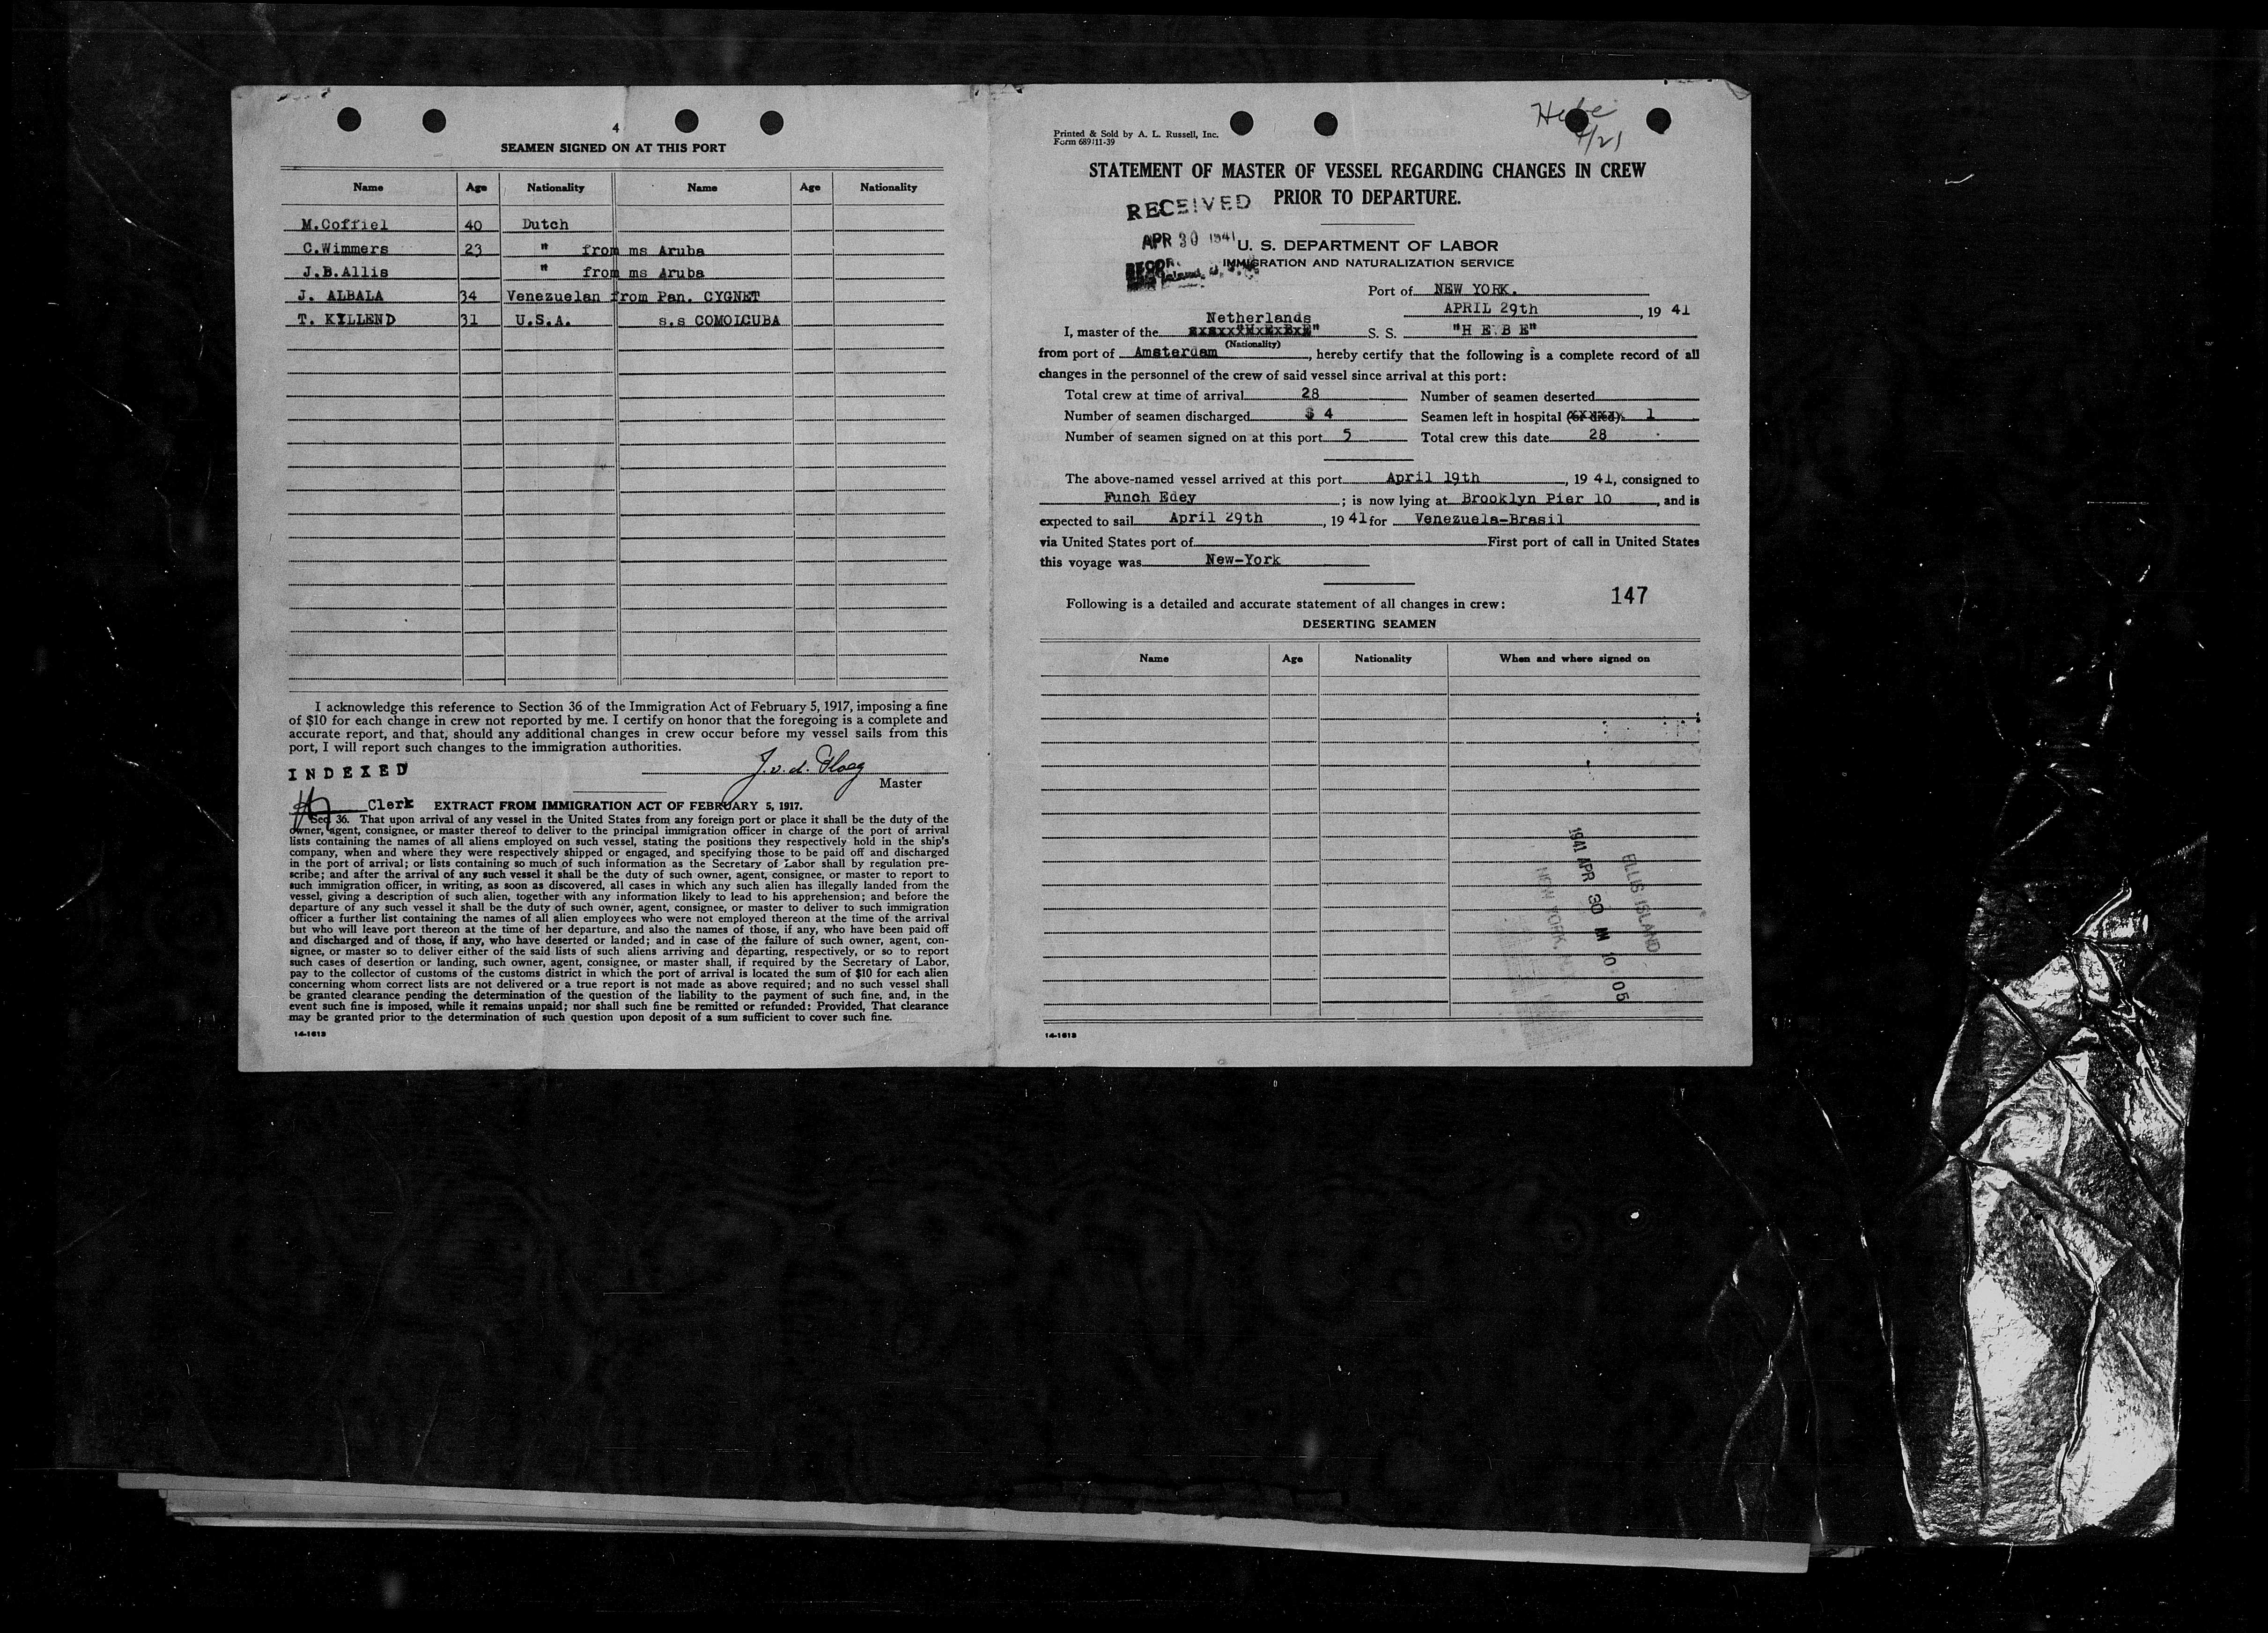 4
SEAMEN SIGNED ON AT THIS PORT
Name Age Nationality Name Age Nationality
M.Coffiel 40 Dutch
C.Wimmers 23 " from ms Aruba
J.B.Allis " from ms Aruba
J. ALBALA 34 Venezuelan from Pan. CYGNET
T. KILLEND 31 U.S.A. s.s COMOLCUBA
I acknowledge this reference to Section 36 of the Immigration Act of February 5, 1917, imposing a fine
of $10 for each change in crew not reported by me. I certify on honor that the foregoing is a complete and
accurate report, and that, should any additional changes in crew occur before my vessel sails from this
port, I will report such changes to the immigration authorities.
INDEXED
J. v. d. Ploeg
Master
Clerk
EXTRACT FROM IMMIGRATION ACT OF FEBRUARY 5, 1917.
Sec. 36. That upon arrival of any vessel in the United States from any foreign port or place it shall be the duty of the
owner, agent, consignee, or master thereof to deliver to the principal immigration officer in charge of the port of arrival
lists containing the names of all aliens employed on such vessel, stating the positions they respectively hold in the ship's
company, when and where they were respectively shipped or engaged, and specifying those to be paid off and discharged
in the port of arrival; or lists containing so much of such information as the Secretary of Labor shall by regulation pre-
scribe; and after the arrival of any such vessel it shall be the duty of such owner, agent, consignee, or master to report to
such immigration officer, in writing, as soon as discovered, all cases in which any such alien has illegally landed from the
vessel, giving a description of such alien, together with any information likely to lead to his apprehension; and before the
departure of any such vessel it shall be the duty of such owner, agent, consignee, or master to deliver to such immigration
officer a further list containing the names of all alien employees who were not employed thereon at the time of the arrival
but who will leave port thereon at the time of her departure, and also the names of those, if any, who have been paid off
and discharged and of those, if any, who have deserted or landed; and in case of the failure of such owner, agent, con-
signee, or master so to deliver either of the said lists of such aliens arriving and departing, respectively, or so to report
such cases of desertion or landing, such owner, agent, consignee, or master shall, if required by the Secretary of Labor,
pay to the collector of customs of the customs district in which the port of arrival is located the sum of $10 for each alien
concerning whom correct lists are not delivered or a true report is not made as above required; and no such vessel shall
be granted clearance pending the determination of the question of the liability to the payment of such fine, and, in the
event such fine is imposed, while it remains unpaid; nor shall such fine be remitted or refunded: Provided, That clearance
may be granted prior to the determination of such question upon deposit of a sum sufficient to cover such fine.
14-1618
Hebe
4/21
Printed & Sold by A. L. Russell, Inc.
Form 689:11-39
STATEMENT OF MASTER OF VESSEL REGARDING CHANGES IN CREW
PRIOR TO DEPARTURE.
RECEIVED
APR 30 1941
U. S. DEPARTMENT OF LABOR
IMMIGRATION AND NATURALIZATION SERVICE
Port of NEW YORK.
APRIL 29th, 19 41
I, master of the Netherlands S. S. "H E B E"
(Nationality)
from port of Amsterdam, hereby certify that the following is a complete record of all
changes in the personnel of the crew of said vessel since arrival at this port:
Total crew at time of arrival 28 Number of seamen deserted
Number of seamen discharged 4 Seamen left in hospital (or died) 1
Number of seamen signed on at this port 5 Total crew this date 28
The above-named vessel arrived at this port April 19th, 19 41, consigned to
Funch Edey; is now lying at Brooklyn Pier 10, and is
expected to sail April 29th, 19 41 for Venezuela-Brasil
via United States port of First port of call in United States
this voyage was New-York
147
Following is a detailed and accurate statement of all changes in crew:
DESERTING SEAMEN
Name Age Nationality When and where signed on
ELLIS ISLAND
1941 APR 30 AM 10 05
NEW YORK, N.Y.
14-1618